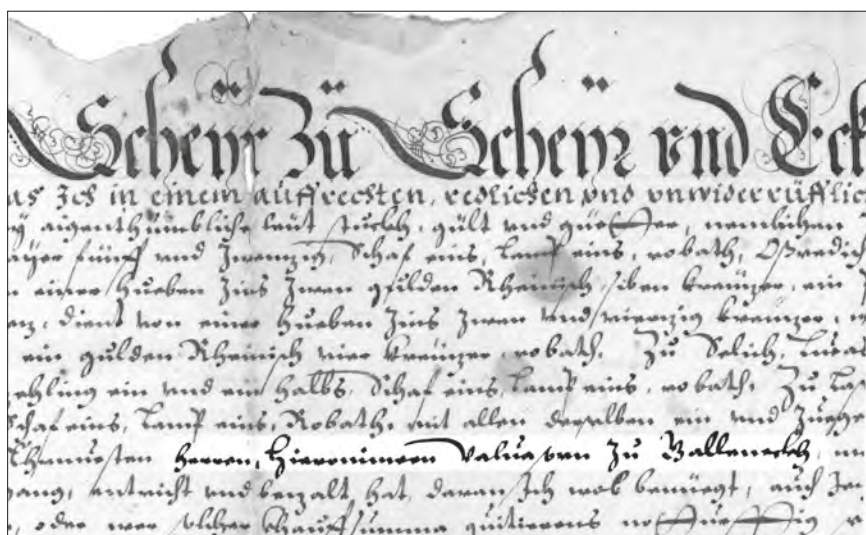 Scheÿr Zü Scheÿr vnd Eck
as Ich in einem auffrechten, redlichen vnd vnwiderrüfflic
aigenthumbliche leüt stuckh, gült vnd güetter, nemlichen
fünff vnd Zwenzig, Schaf eins, Lamp eins, robath,
einer Hueben Zins Zwen gulden Rheinisch, siben kreuzer, ein
dient von einer Hueben Zins Zwen vnd vierzig kreuzer,
ein gulden Rheinisch vier kreuzer, robath. Zu Selich, Lucas
ein vnd ein halbs, Schaf eins, Lamp eins, robath, Zu La
Schaf eins, Lamp eins, Robath, mit allen derselben ein vnd Zuege
herren, Hieronimen Valuasorn Zu Galleneckh,
entricht vnd bezalt hat, daran Ich wol benüegt, auch
oder wer solcher Khauffsumma quitierens notturfftig